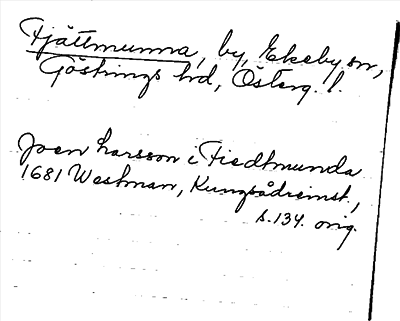 Fjättmunna, by, Ekeby sn,
Göstrings hd, Österg. l.
Joen Larsson i Fiedtmunda
1681 Westman, Kungsådreinst.,
s. 134. orig.